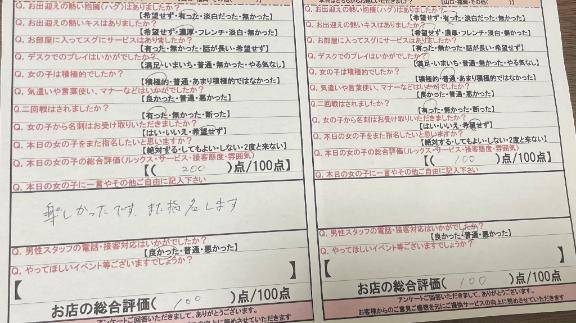 Q. お出迎えの熱い抱擁(ハグ)はありましたか?
【希望せず・有った・淡白だった・無かった】
Q. お出迎えの熱いキスはありましたか?
【希望せず・濃厚・フレンチ・淡白・無かった】
Q. お部屋に入ってスグにサービスはありましたか?
【有った・無かった・話が長い・希望せず】
Q. デスクでのプレイはいかがでしたか?
【満足・いまいち・普通・無かった・やる気なし】
Q. 女の子は積極的でしたか?
【積極的・普通・あまり積極的ではなかった】
Q. 気遣いや言葉使い、マナーなどはいかがでしたか?
【良かった・普通・悪かった】
Q. 二回戦はされましたか?
【有った・無かった・断った】
Q. 女の子から名刺はお受け取りいただきましたか?
【はい・いいえ・希望せず】
Q. 本日の女の子をまた指名したいと思いますか?
【絶対する・してもよい・しない・2度と来ない】
Q. 本日の女の子の総合評価(ルックス・サービス・接客態度・雰囲気)
【( 200 )点/100点】
Q. 本日の女の子に一言やその他ご自由に記入下さい
楽しかったです。また指名します
Q. 男性スタッフの電話・接客対応はいかがでしたか?
【良かった・普通・悪かった】
Q. やってほしいイベント等ございますでしょうか?
【 】
お店の総合評価( 100 )点/100点
アンケートご回答いただきまして、ありがとうございます。
Q. お出迎えの熱い抱擁(ハグ)はありましたか?
【希望せず・有った・淡白だった・無かった】
Q. お出迎えの熱いキスはありましたか?
【希望せず・濃厚・フレンチ・淡白・無かった】
Q. お部屋に入ってスグにサービスはありましたか?
【有った・無かった・話が長い・希望せず】
Q. デスクでのプレイはいかがでしたか?
【満足・いまいち・普通・無かった・やる気なし】
Q. 女の子は積極的でしたか?
【積極的・普通・あまり積極的ではなかった】
Q. 気遣いや言葉使い、マナーなどはいかがでしたか?
【良かった・普通・悪かった】
Q. 二回戦はされましたか?
【有った・無かった・断った】
Q. 女の子から名刺はお受け取りいただきましたか?
【はい・いいえ・希望せず】
Q. 本日の女の子をまた指名したいと思いますか?
【絶対する・してもよい・しない・2度と来ない】
Q. 本日の女の子の総合評価(ルックス・サービス・接客態度・雰囲気)
【( 100 )点/100点】
Q. 本日の女の子に一言やその他ご自由に記入下さい
Q. 男性スタッフの電話・接客対応はいかがでしたか?
【良かった・普通・悪かった】
Q. やってほしいイベント等ございますでしょうか?
【 】
お店の総合評価( 100 )点/100点
アンケートご回答いただきまして、ありがとうございます。
お客様からのご意見ご感想を元にご提供サービスの向上に努めさせていただきます